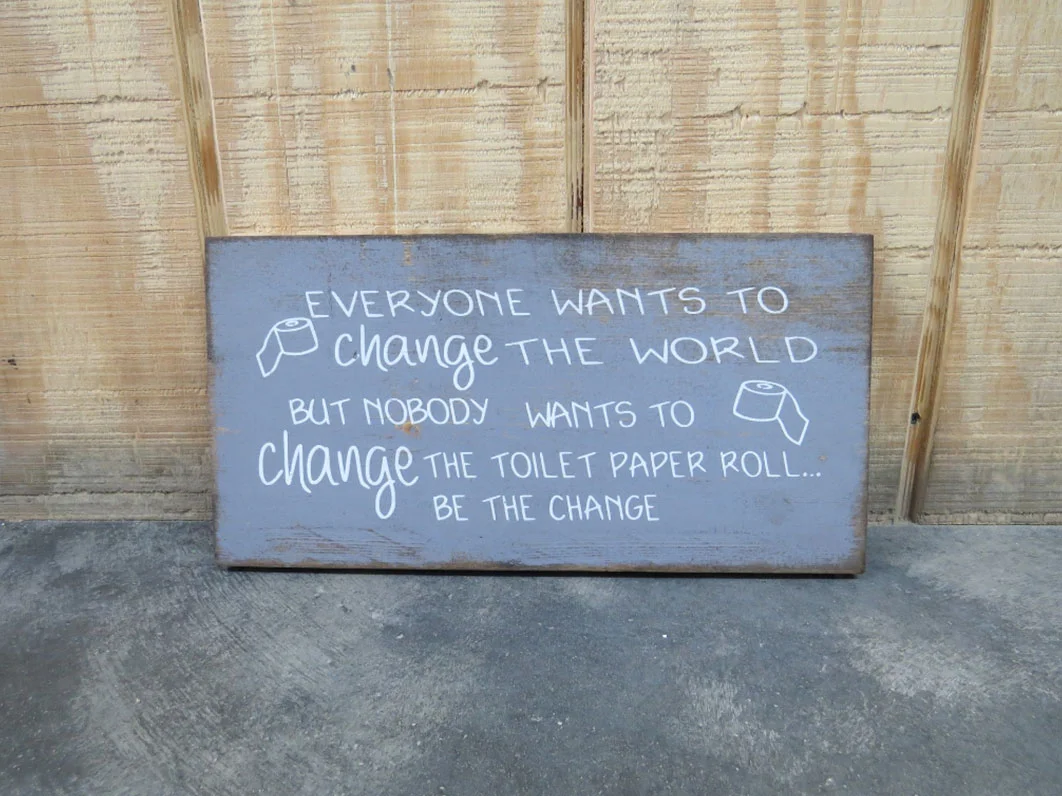 EVERYONE WANTS TO
change THE WORLD
BUT NOBODY WANTS TO
change THE TOILET PAPER ROLL...
BE THE CHANGE